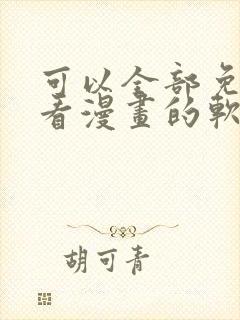 可以全部免
看漫畫的軟
胡可青